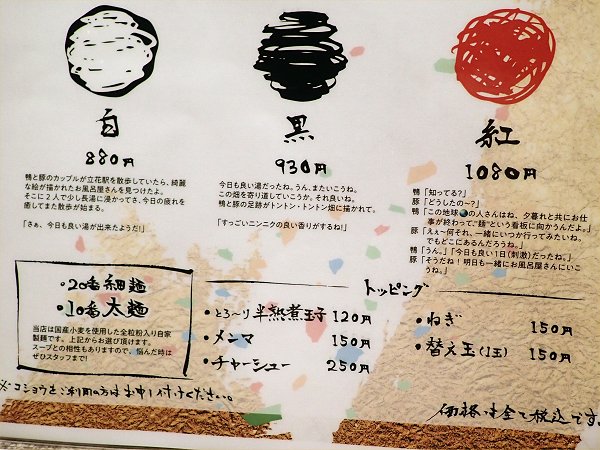 白
880円
鴨と豚のカップルが立花駅を散歩していたら、綺麗
な絵が描かれたお風呂屋さんを見つけたよ。
そこに2人で少し長湯に浸かってさ、今日の疲れを
癒してまた散歩が始まる。
「さぁ、今日も良い湯が出来たようだ!」
黒
930円
今日も良い湯だったね。うん、またいこうね。
この畑を寄り道していこうか。それ良いね。
鴨と豚の足跡がトントン・トントン畑に描かれて。
「すっごいニンニクの良い香りがするね!」
紅
1080円
鴨「知ってる?」
豚「どうしたの〜?」
鴨「この地球の人さんはね、夕暮れと共にお仕
事が終わって"麺"という看板に向かうんだよ。」
豚「えぇ〜何それ、一緒にいつか行ってみたいね。
でもどこにあるんだろうね。」
鴨「うん。」「今日も良い1日(刺激)だったね。」
豚「そうだね!明日も一緒にお風呂屋さんにいこ
うね。」
・20番 細麺
・10番 太麺
当店は国産小麦を使用した全粒粉入り自家
製麺です。上記からお選び頂けます。
スープとの相性もありますので、悩んだ時は
ぜひスタッフまで!
トッピング
・とろ〜り半熟煮玉子 120円
・メンマ 150円
・チャーシュー 250円
・ねぎ 150円
・替え玉(1玉) 150円
※コショウをご利用の方はお申し付けください。
価格は全て税込です。